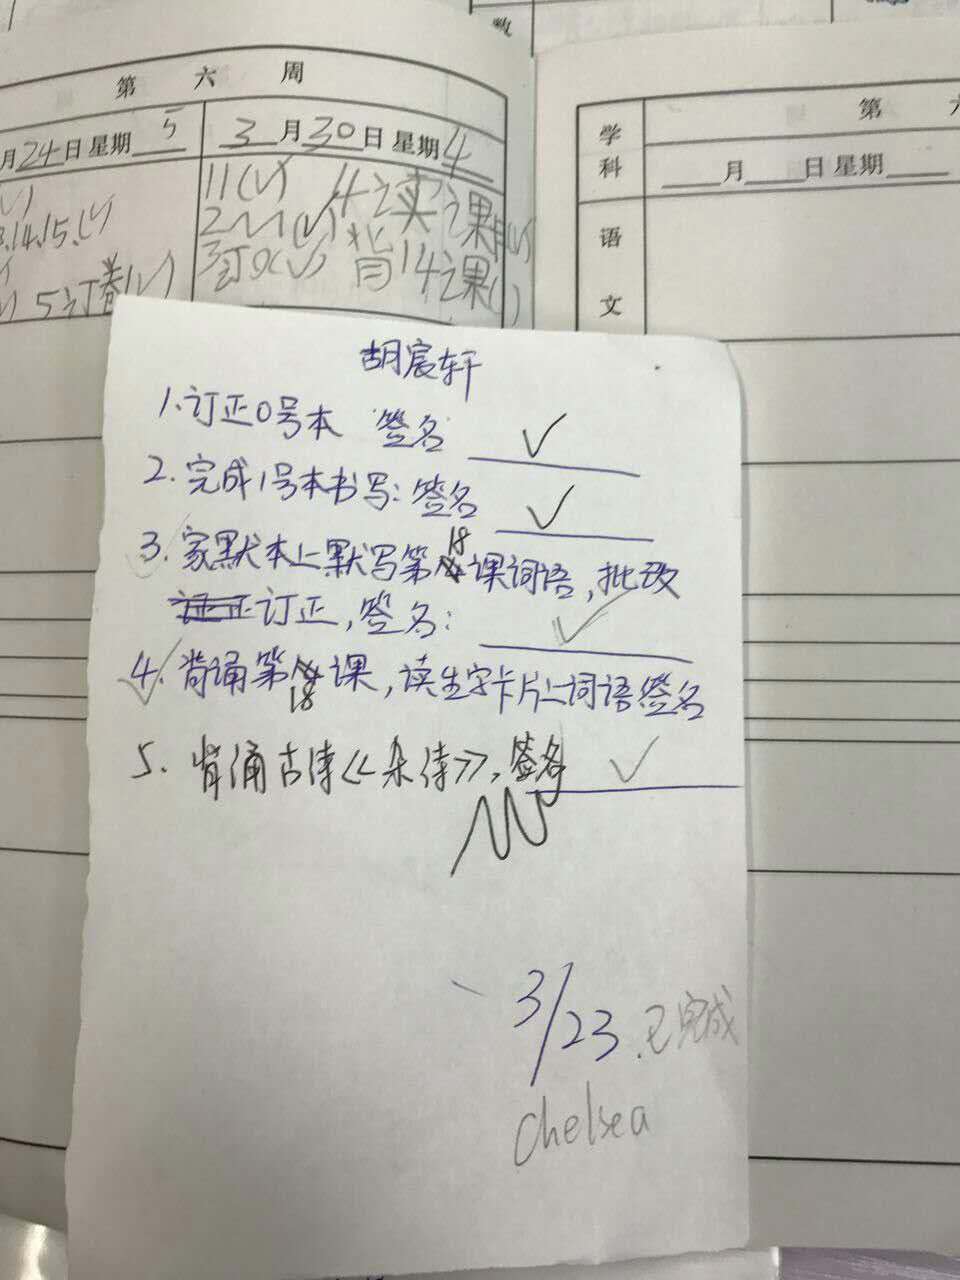 数
第 六 周
月24日星期 5
3月30日星期4
11(√) 4订实课
.14.15.(√)
2 (√)
3订9(√) 背14课( )
5订卷(√)
第
学科
月 日 星期
语文
胡宸轩
1.订正0号本 签名 √
2.完成1号本书写:签名 √
3.家默本上默写第18课词语,批改
订正,签名: √
4.背诵第18课,读生字卡片上词语签名
5.背诵古诗《杂诗》,签名 √
3/23.已完成
Chelsea